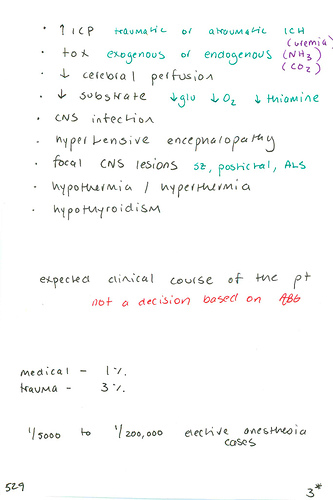 · ↑ICP traumatic or atraumatic ICH
· tox exogenous or endogenous (uremia)
(NH3)
(CO2)
· ↓ cerebral perfusion
· ↓ substrate ↓glu ↓O2 ↓thiamine
· CNS infection
· hypertensive encephalopathy
· focal CNS lesions sz, postictal, ALS
· hypothermia / hyperthermia
· hypothyroidism
expected clinical course of the pt
not a decision based on ABG
medical - 1%
trauma - 3%
1/5000 to 1/200,000 elective anesthesia
cases
529
3*